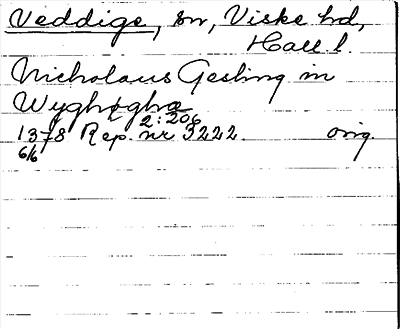 Veddige, sn, Viske hd,
Hall. l.
Nicholaus Gesling in
Wyghøghæ
2:206
1378 Rep. nr 3222. orig.
6/6